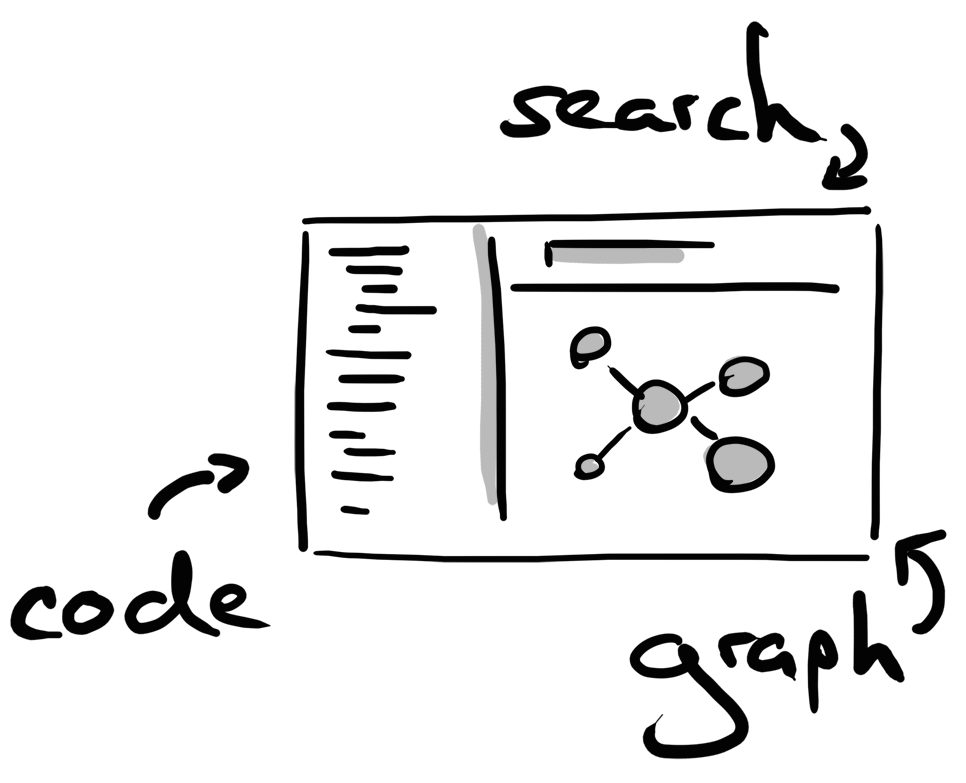 search
code
graph